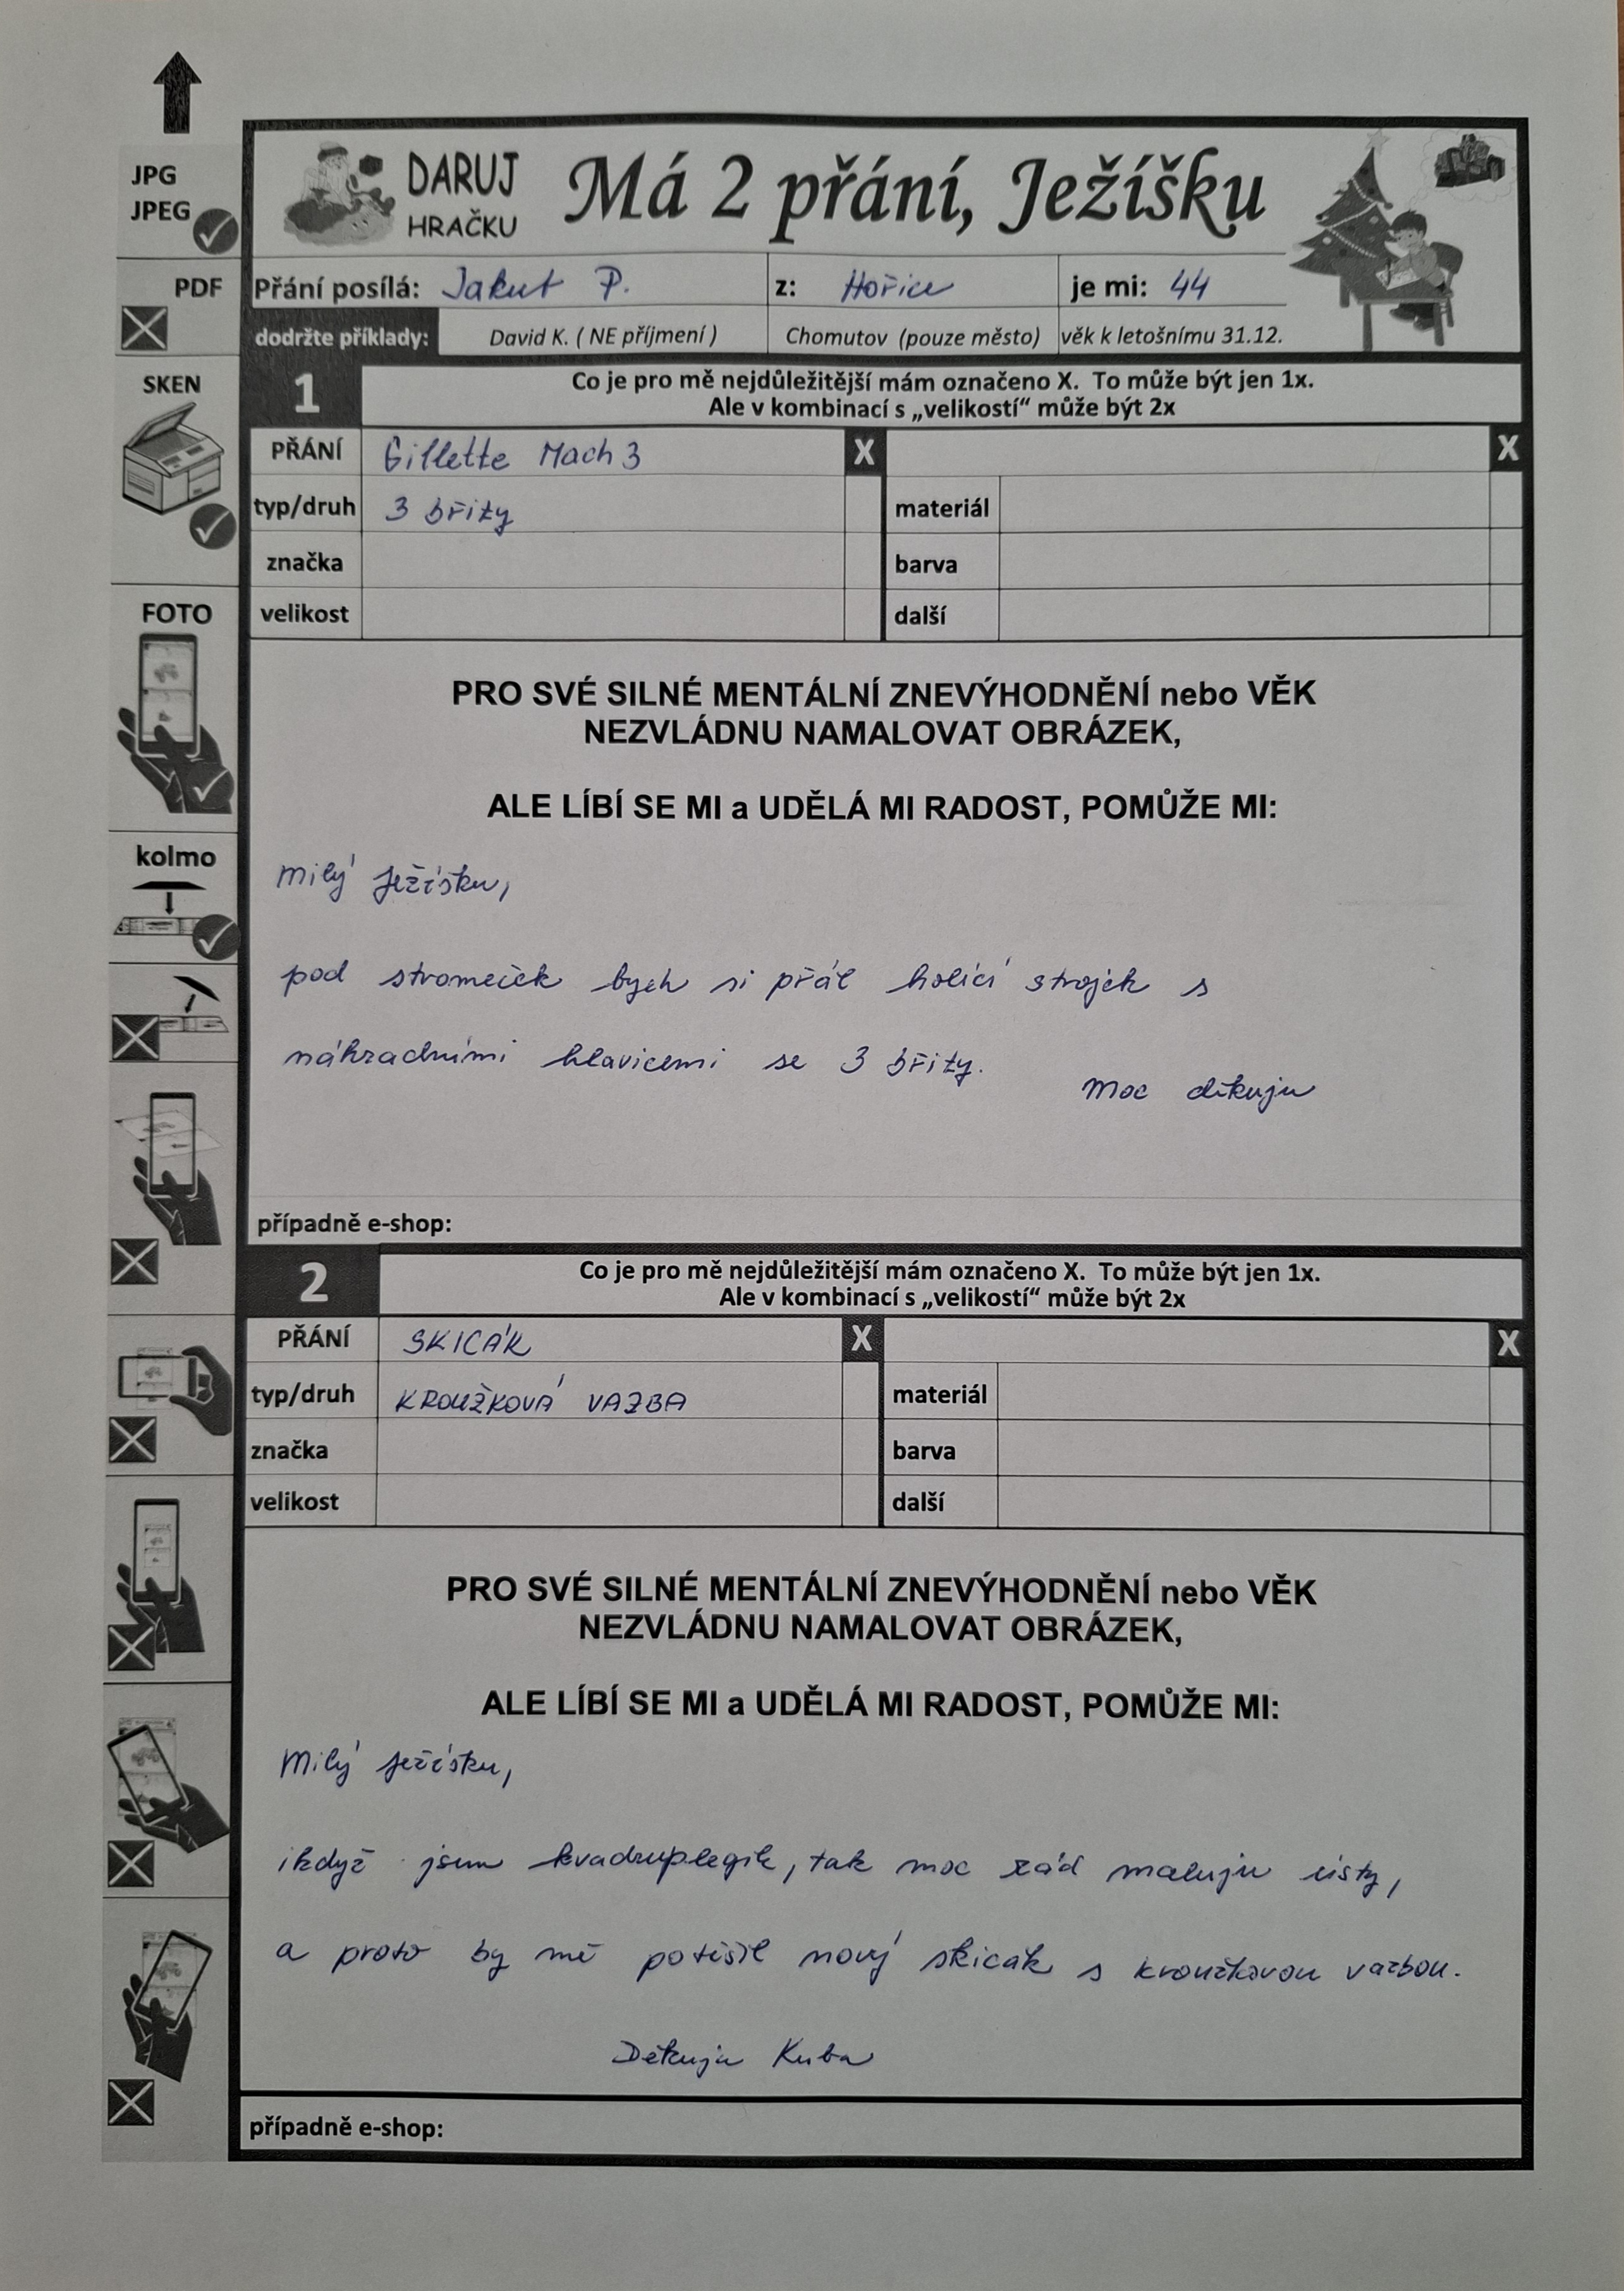 JPG
JPEG
PDF
SKEN
FOTO
kolmo
DARUJ
HRAČKU
Má 2 přání, Ježíšku
Přání posílá: Jakub P. z: Hořice je mi: 44
dodržte příklady: David K. ( NE příjmení ) Chomutov (pouze město) věk k letošnímu 31.12.
1 Co je pro mě nejdůležitější mám označeno X. To může být jen 1x.
Ale v kombinací s „velikostí“ může být 2x
PŘÁNÍ Gillette Mach 3 X X
typ/druh 3 břity materiál
značka barva
velikost další
PRO SVÉ SILNÉ MENTÁLNÍ ZNEVÝHODNĚNÍ nebo VĚK
NEZVLÁDNU NAMALOVAT OBRÁZEK,
ALE LÍBÍ SE MI a UDĚLÁ MI RADOST, POMŮŽE MI:
Milý Ježíšku,
pod stromeček bych si přál holící strojek s
náhradními hlavicemi se 3 břity.
Moc děkuju
případně e-shop:
2 Co je pro mě nejdůležitější mám označeno X. To může být jen 1x.
Ale v kombinací s „velikostí“ může být 2x
PŘÁNÍ SKICÁK X X
typ/druh KROUŽKOVÁ VAZBA materiál
značka barva
velikost další
PRO SVÉ SILNÉ MENTÁLNÍ ZNEVÝHODNĚNÍ nebo VĚK
NEZVLÁDNU NAMALOVAT OBRÁZEK,
ALE LÍBÍ SE MI a UDĚLÁ MI RADOST, POMŮŽE MI:
Milý Ježíšku,
ikdyž jsem kvadruplegik, tak moc rád maluju ústy,
a proto by mě potěšil nový skicák s kroužkovou vazbou.
Děkuju Kuba
případně e-shop: